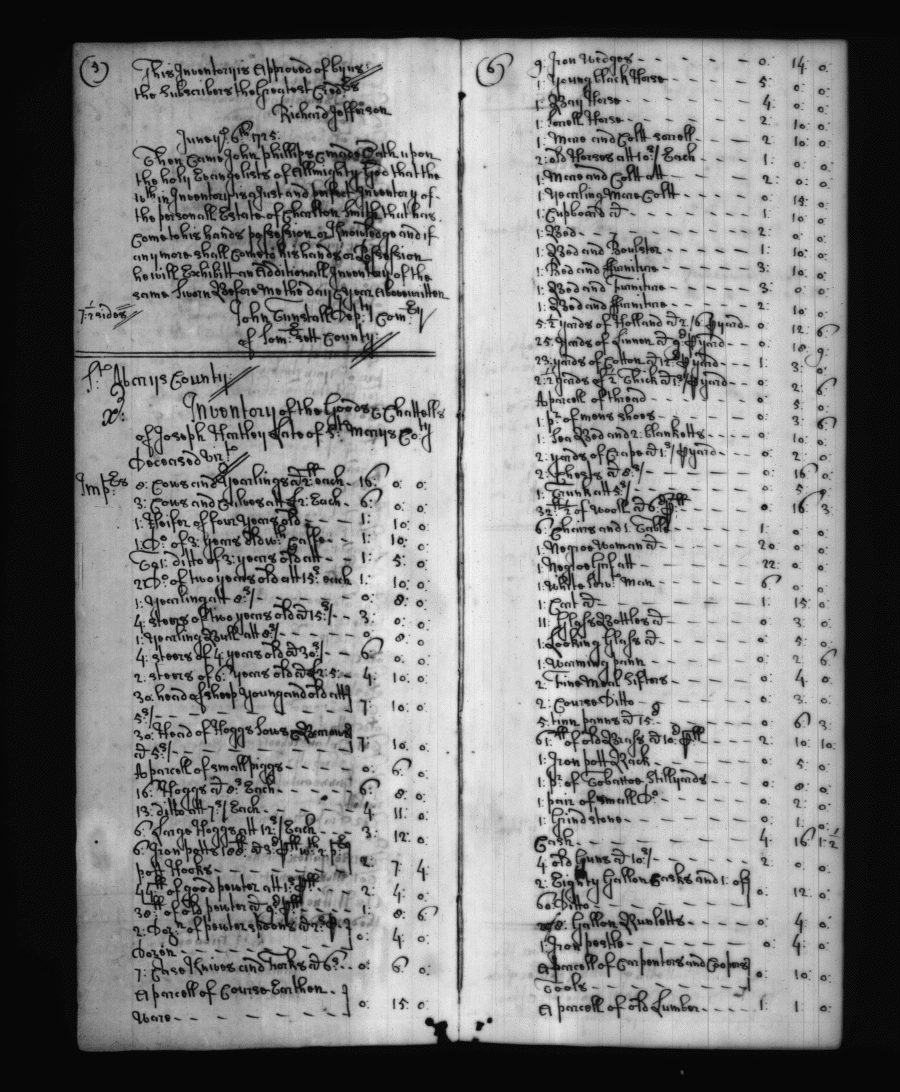 (5)
This Inventory is Approved of by us:
the Subscribers the Greatest Creds
Richard Jefferson
June ye 6th 1725:
Then Came John Phillips & made Oath upon
the holy Evangelists of Allmighty God that the
within Inventory is a Just and perfect Inventory of
the personall Estate of Charlton Smith that has
Come to his hands possession or knowledge and if
any more shall Come to his hands or possession
he will Exhibitt an Additionall Inventory of the
same Sworn Before me the day & year Above written
7:½ sides
John Tunstall Depty Comry
of Somersett County
St Marys County
Inventory of the Goods & Chattells
of Joseph Hartley Late of St Marys Coty
Deceased
Imprs 8: Cows and Yearlings @ 2 Each - 16: 0: 0:
3: Cows and Calves att £2: Each - 6: 0: 0:
1: Heifer of four Years old - 1: 10: 0:
1: Do of 3: years old wth Calfe - 1: 10: 0:
1: ditto of 3: years old att - 1: 5: 0:
2: Do of two years old att 15s: each 1: 10: 0:
1: Yearling att 8s/ - 0: 8: 0:
4: steers of two years old @ 15s/ - 3: 0: 0:
1: Yearling Bull att 8s/ - 0: 8: 0:
4: steers of 4: years old @ 30s/ - 6: 0: 0:
2: steers of 6: years old @ £2: 5: - 4: 10: 0:
30: head of sheep young and old att
5s/ - 7: 10: 0:
30: Head of Hoggs Sows & Barrows
@ 5s/ - 7: 10: 0:
A parcell of small piggs - 0: 6: 0:
16: Hoggs @ 8s: Each - 6: 8: 0:
13: ditto att 7s/ Each - 4: 11: 0:
6: Large Hoggs att 12s/ Each - 3: 12: 0:
6: Iron potts @ 3d: p lb wth 2: pr
pott Hooks - 2: 7: 4:
44lb of good pewter att 1s: p lb - 2: 4: 0:
38lb of old pewter @ 9d: p lb - 1: 8: 6:
2: Dozn of pewter spoons @ 2s: p
dozen - 0: 4: 0:
7: Case Knives and forks @ 6s - 0: 6: 0:
A parcell of Course Earthen
Ware - 0: 15: 0:
(6)
9: Iron Wedges - 0: 14: 0:
1: Young black Horse - 5: 0: 0:
1: Bay Horse - 4: 0: 0:
1: Sorrell Horse - 2: 10: 0:
1: Mare and Colt sorrell - 2: 10: 0:
2: old Horses att 10s/ Each - 1: 0: 0:
1: Mare and Colt att - 2: 0: 0:
1: yearling Mare Colt - 0: 15: 0:
1: Cupboard @ - 1: 10: 0:
1: Bed - 2: 0: 0:
1: Bed and Boulster - 1: 10: 0:
1: Bed and furniture - 3: 0: 0:
1: Bed and Furniture - 3: 0: 0:
1: Bed and furniture - 2: 10: 0:
5:½ yards of Holland @ 2/6 p yard - 0: 12: 6
25: Yards of Linnen @ 9d: p yard - 0: 18: 9:
23: yards of Cotton @ 12d: p yard - 1: 3: 0:
2:½ yards of ½ Thick @ 1s/ p yard - 0: 2: 6
A parcell of thread - 0: 5: 0:
1: pr of mens shoes - 0: 3: 6:
1: Sea Bed and 2: blanketts - 0: 10: 0:
2: yards of Crape @ 1s/ p yard - 0: 2: 0:
2: Chests @ 8s/ - 0: 16: 0:
1: Trunk att 5s/ - 0: 5: 0:
32lb:½ of wooll @ 6d: p lb - 0: 16: 3:
6: Chears and 1: Table - 1: 0: 0:
1: Negroe Woman @ - 20: 0: 0:
1: Negroe Girl att - 22: 0: 0:
1: White Servt: Man - 6: 0: 0:
1: Cart @ - 1: 15: 0:
11: Glass Bottles @ - 0: 3: 0:
1: Looking Glass @ - 0: 5: 0:
1: Warming pann - 0: 2: 6
2: Fine Meal Sifters - 0: 4: 0:
2: Course Ditto - 0: 3: 0:
5: tinn panns @ 15d - 0: 6: 3:
61:lb of old Brass @ 10d: p lb - 2: 10: 10:
1: Iron pott Rack - 0: 5: 0:
1: pr of Tobattoe Stillyards - 0: 8: 0:
1: pair of small Do - 0: 2: 0:
1: Grindstone - 0: 1: 0:
Cash - 4: 16: 1:½
4: old Guns @ 10s/ - 2: 0: 0:
2: Eighty Gallon Casks and 1: of
60: Ditto - 0: 12: 0:
8: Gallon Runletts - 0: 4: 0:
1: Iron pestle - 0: 4: 0:
A parcell of Carpenters and Coopers
Tools - 0: 10: 0:
A parcell of old Lumber - 1: 1: 0: